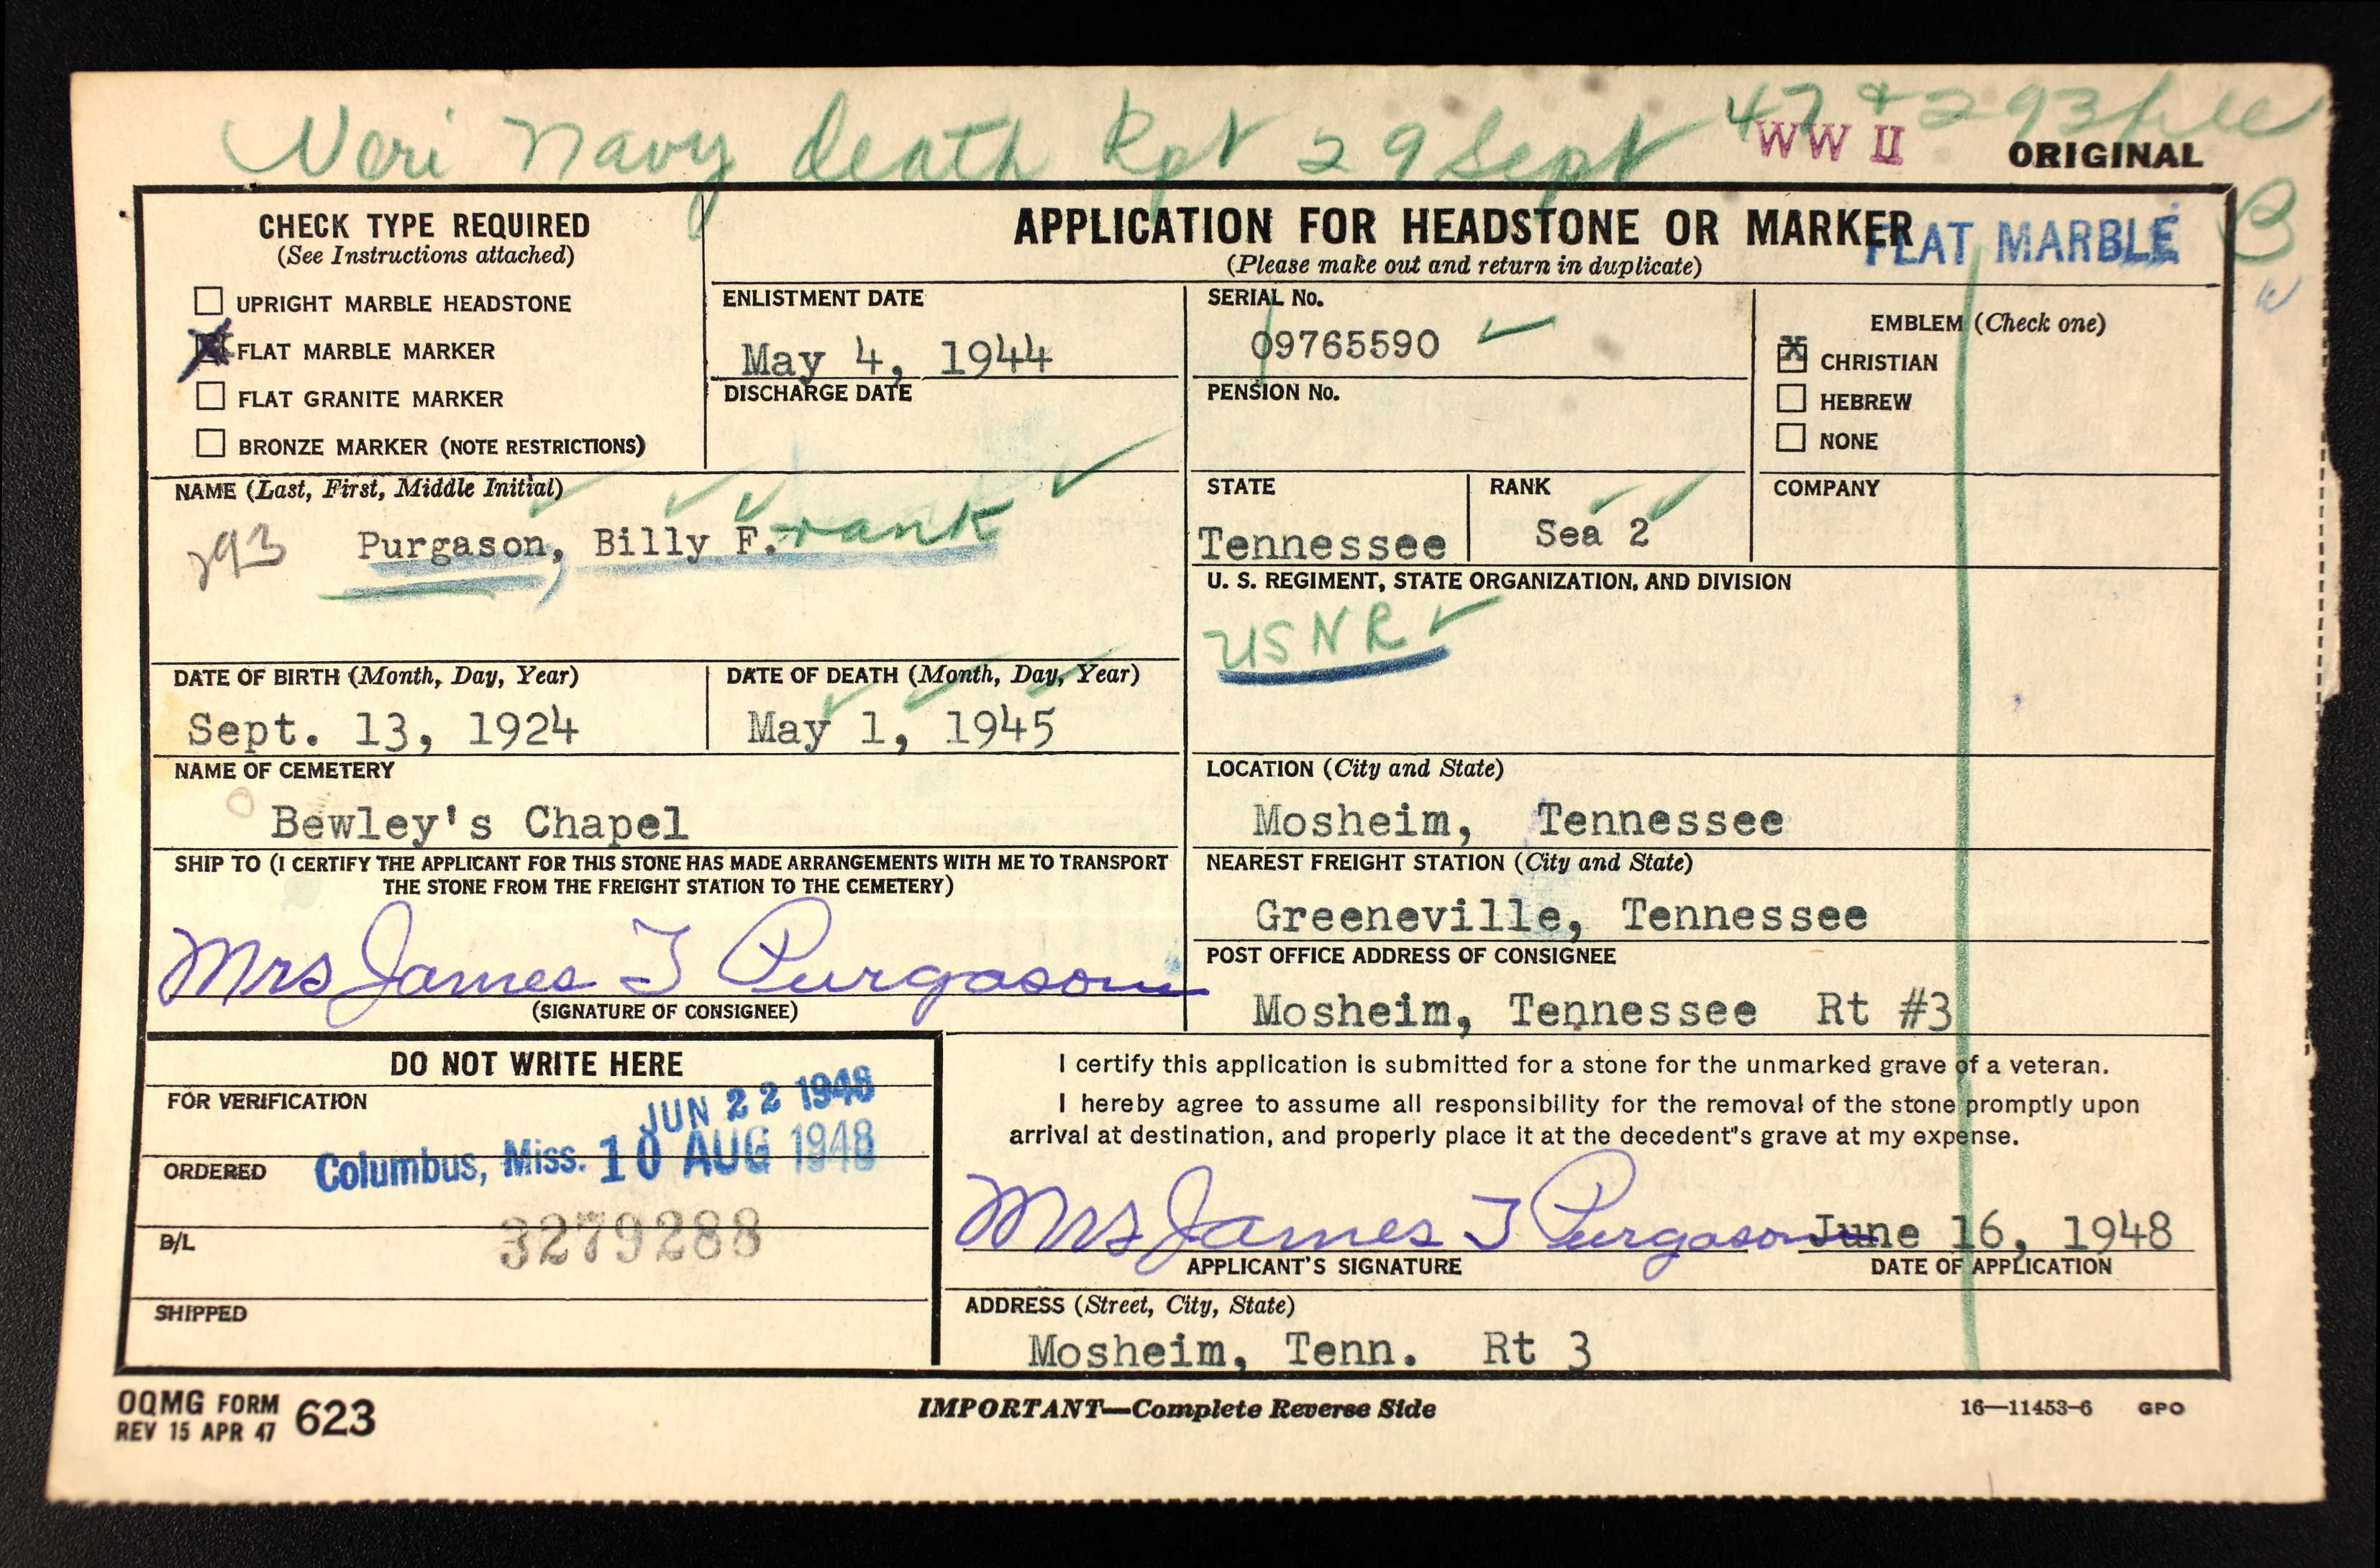 Veri Navy death Rpt 29 Sept 47 & 293 file
WW II
ORIGINAL
CHECK TYPE REQUIRED
(See Instructions attached)
UPRIGHT MARBLE HEADSTONE
FLAT MARBLE MARKER
FLAT GRANITE MARKER
BRONZE MARKER (NOTE RESTRICTIONS)
APPLICATION FOR HEADSTONE OR MARKER
(Please make out and return in duplicate)
FLAT MARBLE
B
ENLISTMENT DATE
May 4, 1944
DISCHARGE DATE
SERIAL No.
09765590
PENSION No.
EMBLEM (Check one)
X CHRISTIAN
HEBREW
NONE
NAME (Last, First, Middle Initial)
293 Purgason, Billy F.rank
STATE
Tennessee
RANK
Sea 2
COMPANY
U. S. REGIMENT, STATE ORGANIZATION, AND DIVISION
USNR
DATE OF BIRTH (Month, Day, Year)
Sept. 13, 1924
DATE OF DEATH (Month, Day, Year)
May 1, 1945
NAME OF CEMETERY
Bewley's Chapel
LOCATION (City and State)
Mosheim, Tennessee
SHIP TO (I CERTIFY THE APPLICANT FOR THIS STONE HAS MADE ARRANGEMENTS WITH ME TO TRANSPORT
THE STONE FROM THE FREIGHT STATION TO THE CEMETERY)
Mrs James T Purgason
(SIGNATURE OF CONSIGNEE)
NEAREST FREIGHT STATION (City and State)
Greeneville, Tennessee
POST OFFICE ADDRESS OF CONSIGNEE
Mosheim, Tennessee Rt #3
DO NOT WRITE HERE
FOR VERIFICATION
JUN 22 1948
ORDERED
Columbus, Miss. 10 AUG 1948
B/L
3279288
SHIPPED
I certify this application is submitted for a stone for the unmarked grave of a veteran.
I hereby agree to assume all responsibility for the removal of the stone promptly upon
arrival at destination, and properly place it at the decedent"s grave at my expense.
Mrs James T Purgason June 16, 1948
APPLICANT'S SIGNATURE
DATE OF APPLICATION
ADDRESS (Street, City, State)
Mosheim, Tenn. Rt 3
OQMG FORM 623
REV 15 APR 47
IMPORTANT—Complete Reverse Side
16—11453-6 GPO